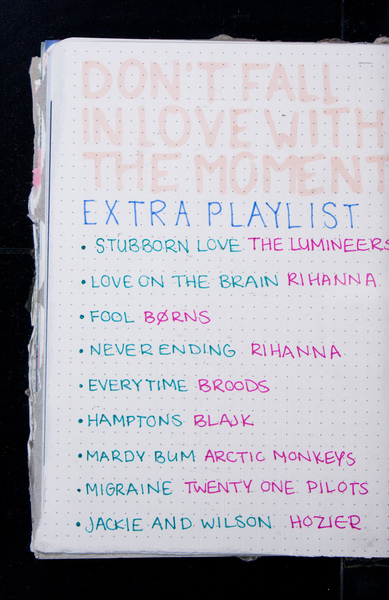 DON'T FALL
IN LOVE WITH
THE MOMENT
EXTRA PLAYLIST
• STUBBORN LOVE THE LUMINEERS
• LOVE ON THE BRAIN RIHANNA
• FOOL BØRNS
• NEVER ENDING RIHANNA
• EVERYTIME BROODS
• HAMPTONS BLAJK
• MARDY BUM ARCTIC MONKEYS
• MIGRAINE TWENTY ONE PILOTS
• JACKIE AND WILSON HOZIER